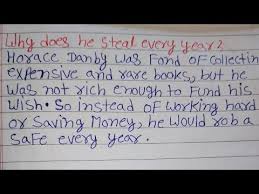 Why does he steal every year?
Horace Danby was Fond of Collectin
expensive and rare books, but he
was not rich enough to Fund his
wish. So instead of working hard
or Saving Money, he would rob a
Safe every year.